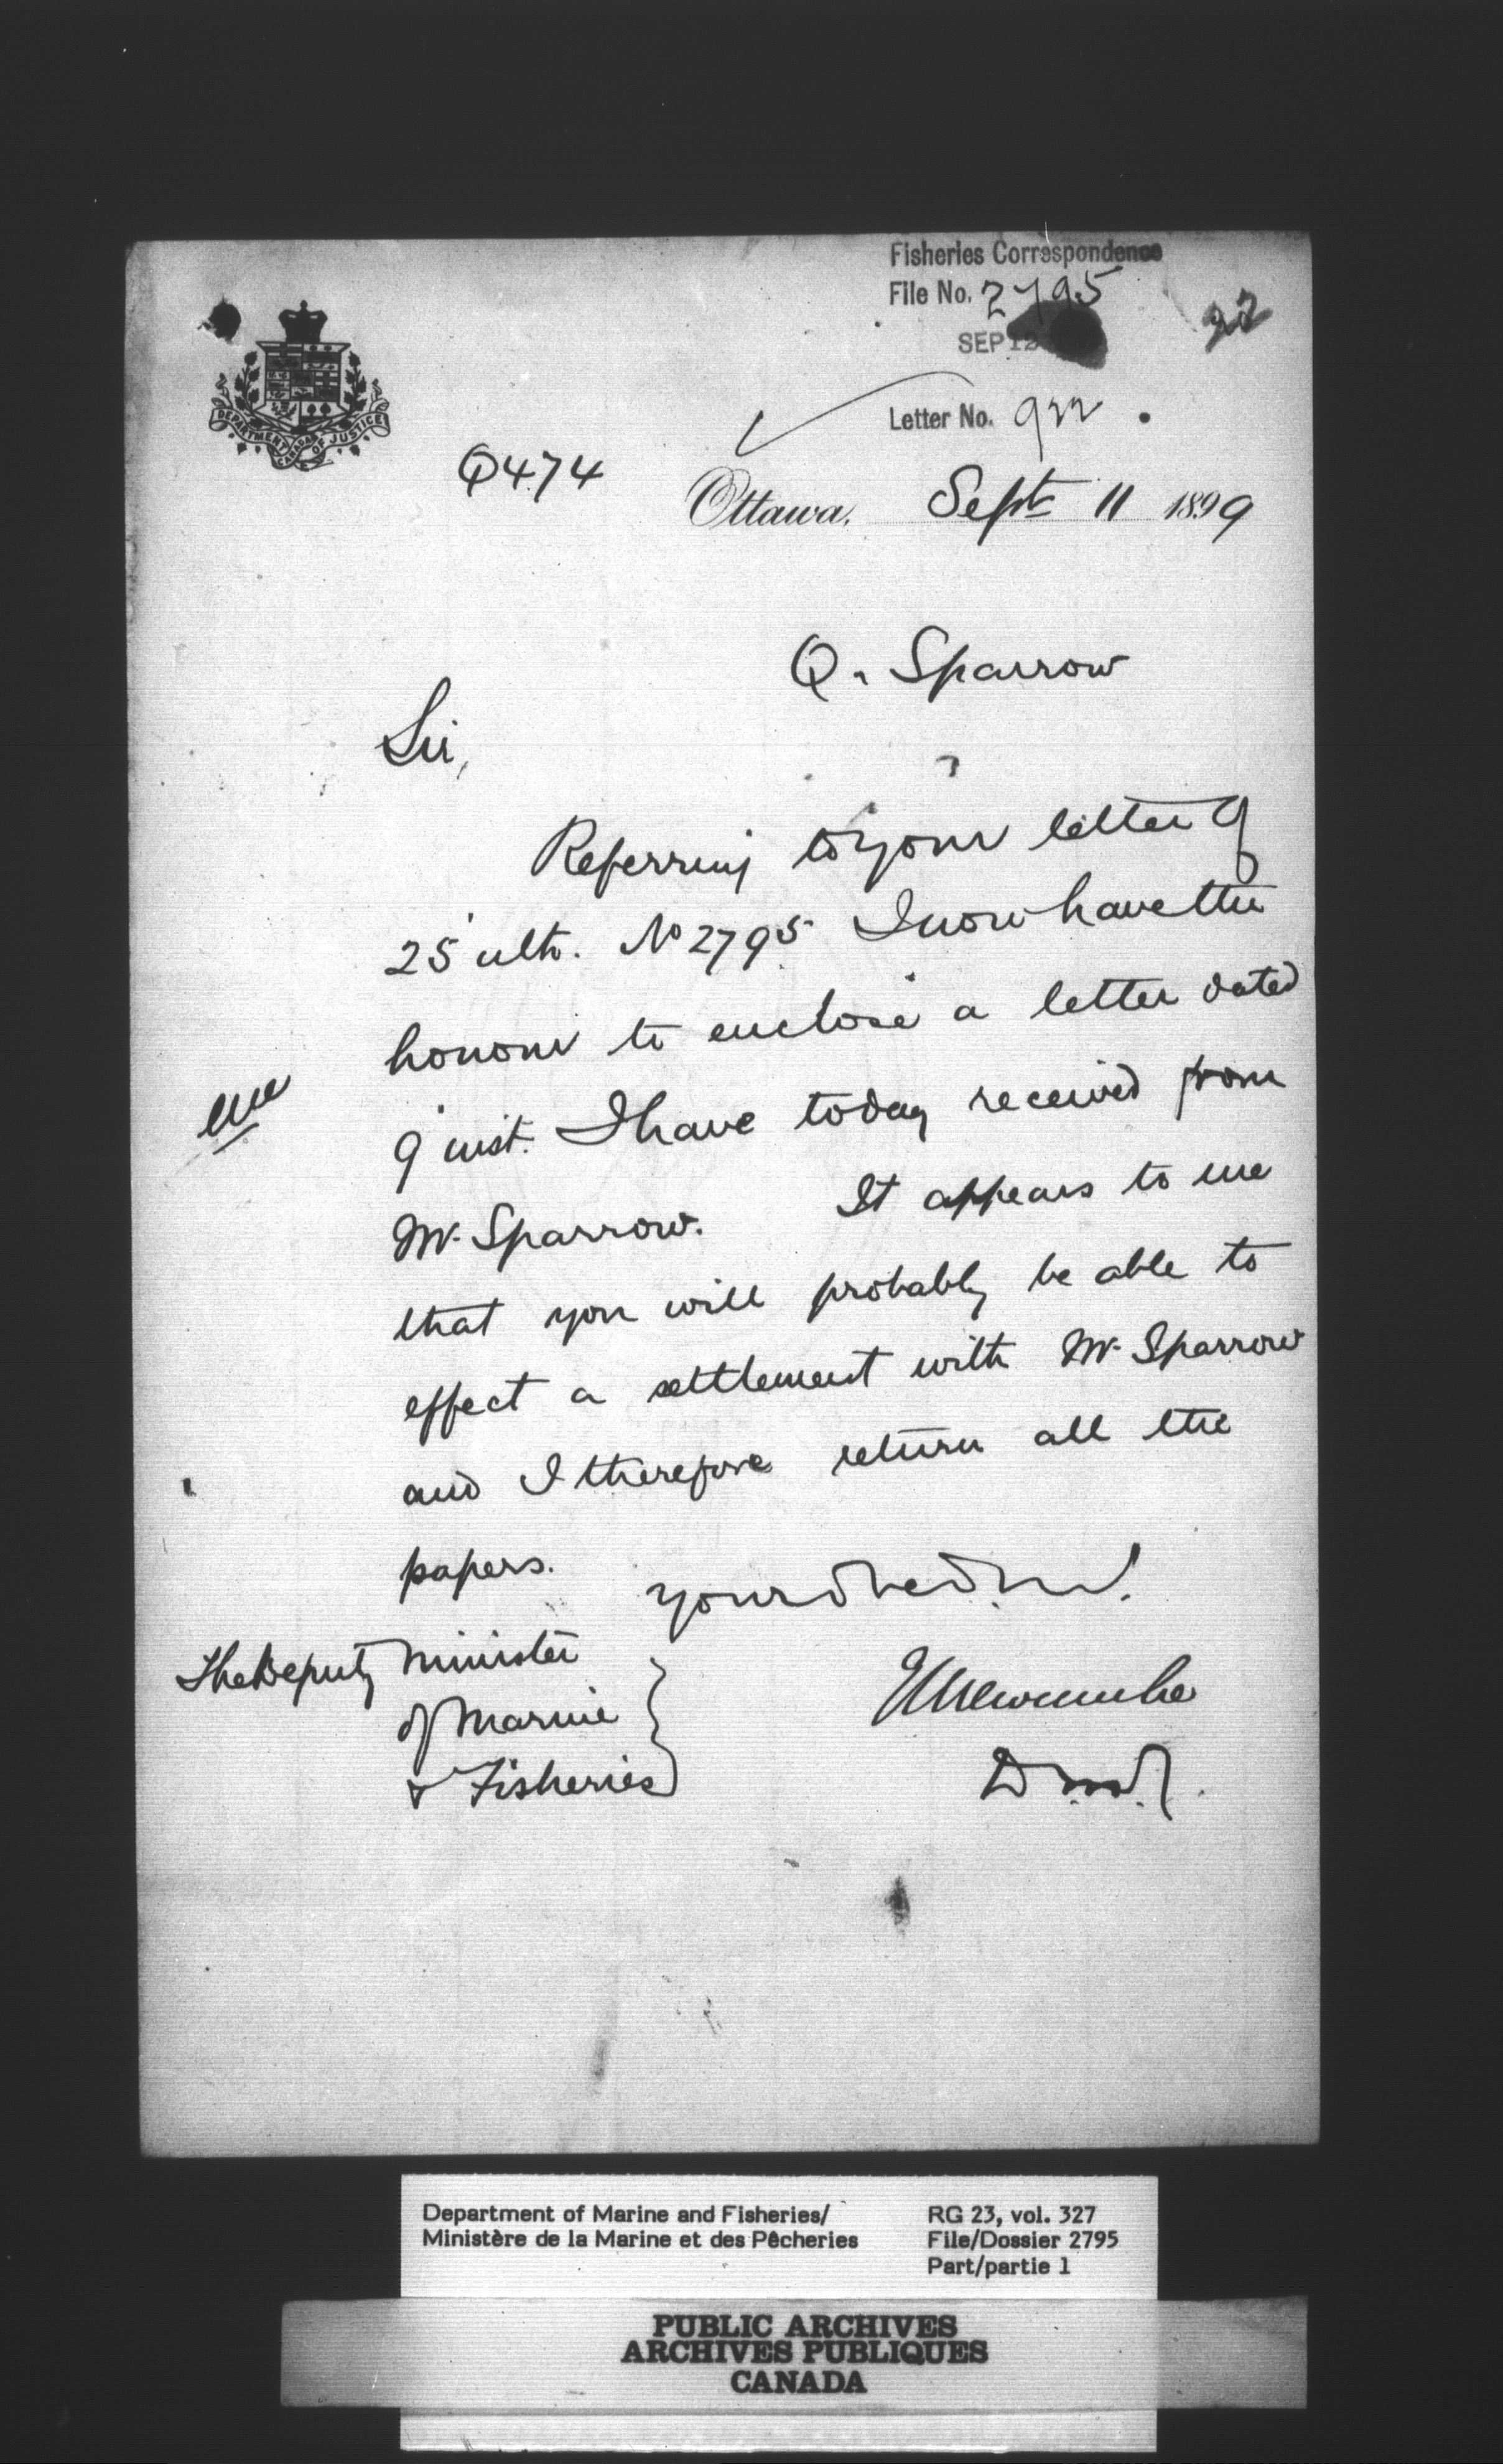 Fisheries Correspondence
File No. 2795
22
SEP 12
Letter No. 922
DEPARTMENT OF JUSTICE
CANADA
Q474
Ottawa, Sept 11 1899
Q. Sparrow
Sir,
Referring to your letter of
25 ulto. No 2795 I now have the
honour to enclose a letter dated
9 inst. I have today received from
Mr. Sparrow. It appears to me
that you will probably be able to
effect a settlement with Mr. Sparrow
and I therefore return all the
papers.
encl
your obed.
The Deputy Minister
of Marine
& Fisheries
E L Newcombe
D.M.J.
Department of Marine and Fisheries/
Ministère de la Marine et des Pêcheries
RG 23, vol. 327
File/Dossier 2795
Part/partie 1
PUBLIC ARCHIVES
ARCHIVES PUBLIQUES
CANADA